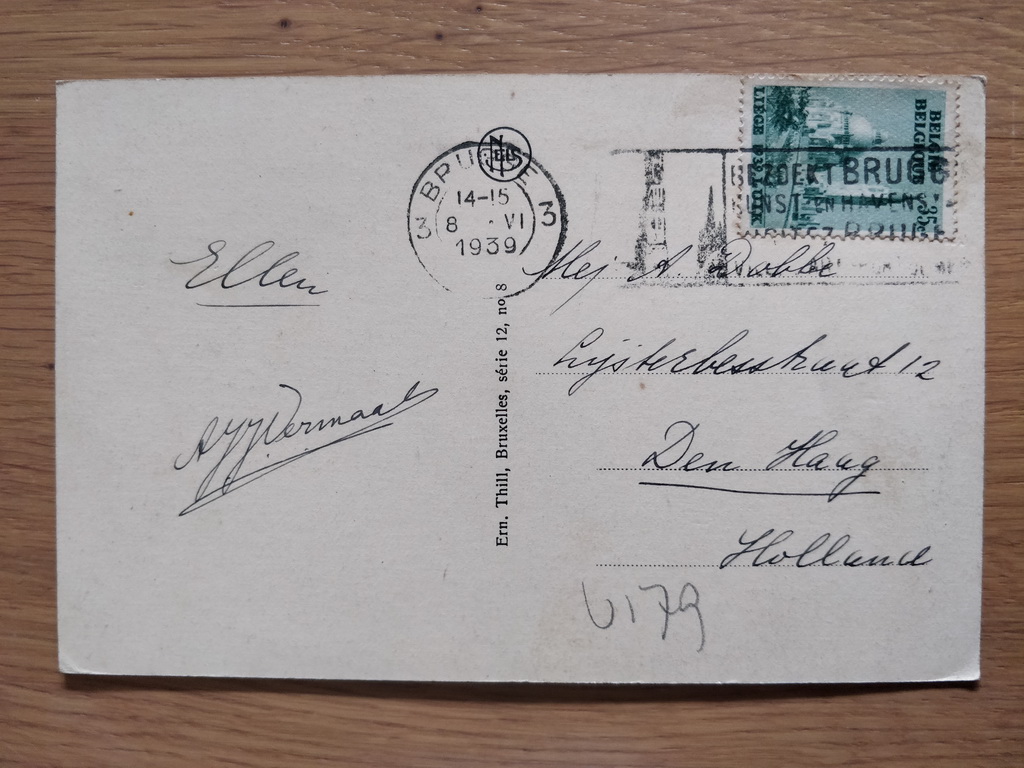 NELS
3 BRUGGE 3
14-15
8 VI
1939
BELGIË
BELGIQUE
35c
LIEGE 1939 LUIK
BEZOEKT BRUGGE
KUNST EN HAVEN
VISITEZ BRUGES
Ellen
AJJ Vermaat
Ern. Thill, Bruxelles, série 12, no 8
Mej A. Dubbe
Lijsterbesstraat 12
Den Haag
Holland
V179